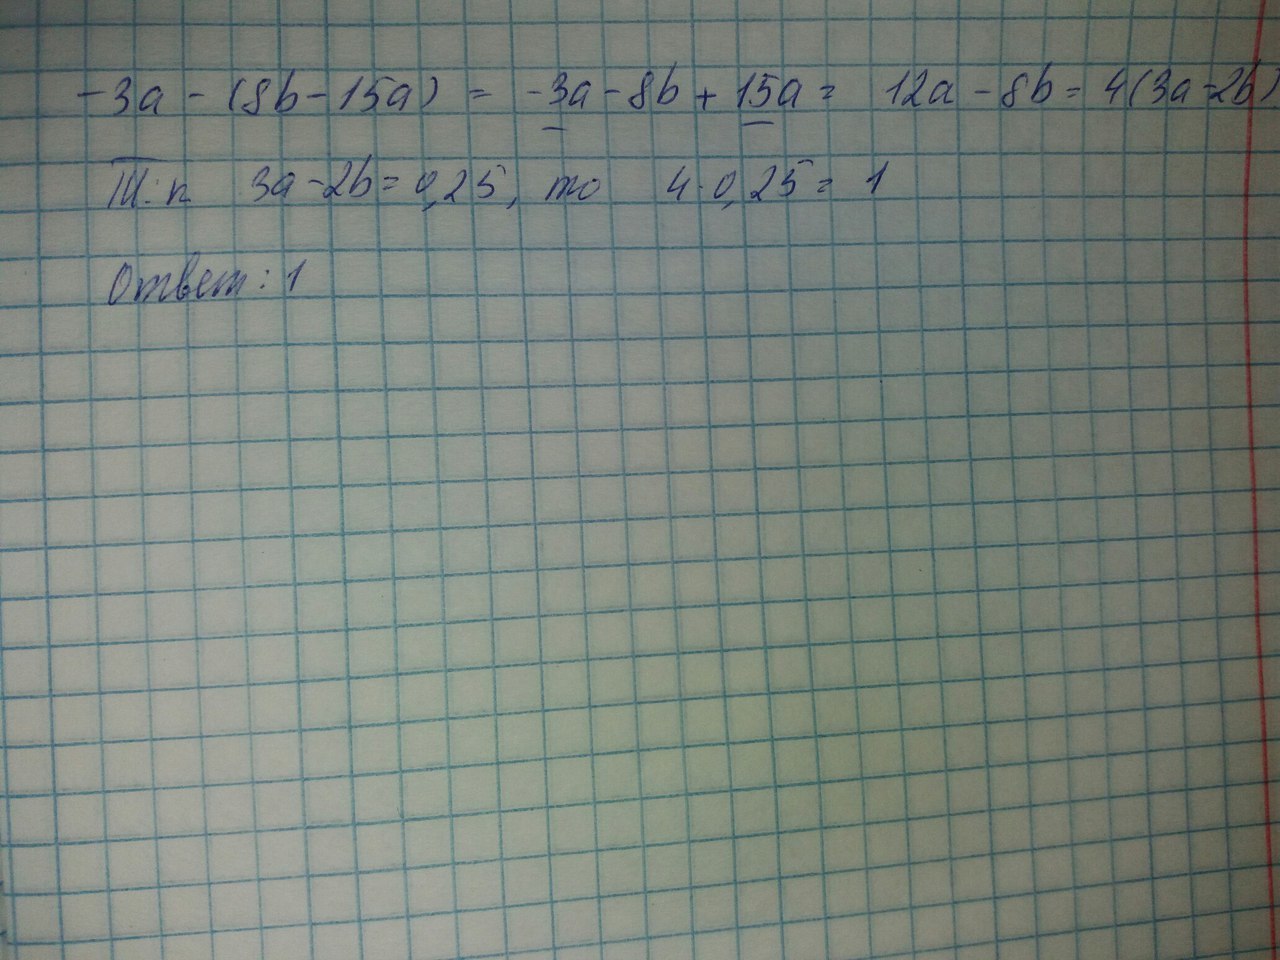 -3a - (8b - 15a) = -3a - 8b + 15a = 12a - 8b = 4(3a - 2b)
Т.к 3a - 2b = 0,25, то 4·0,25 = 1
Ответ: 1